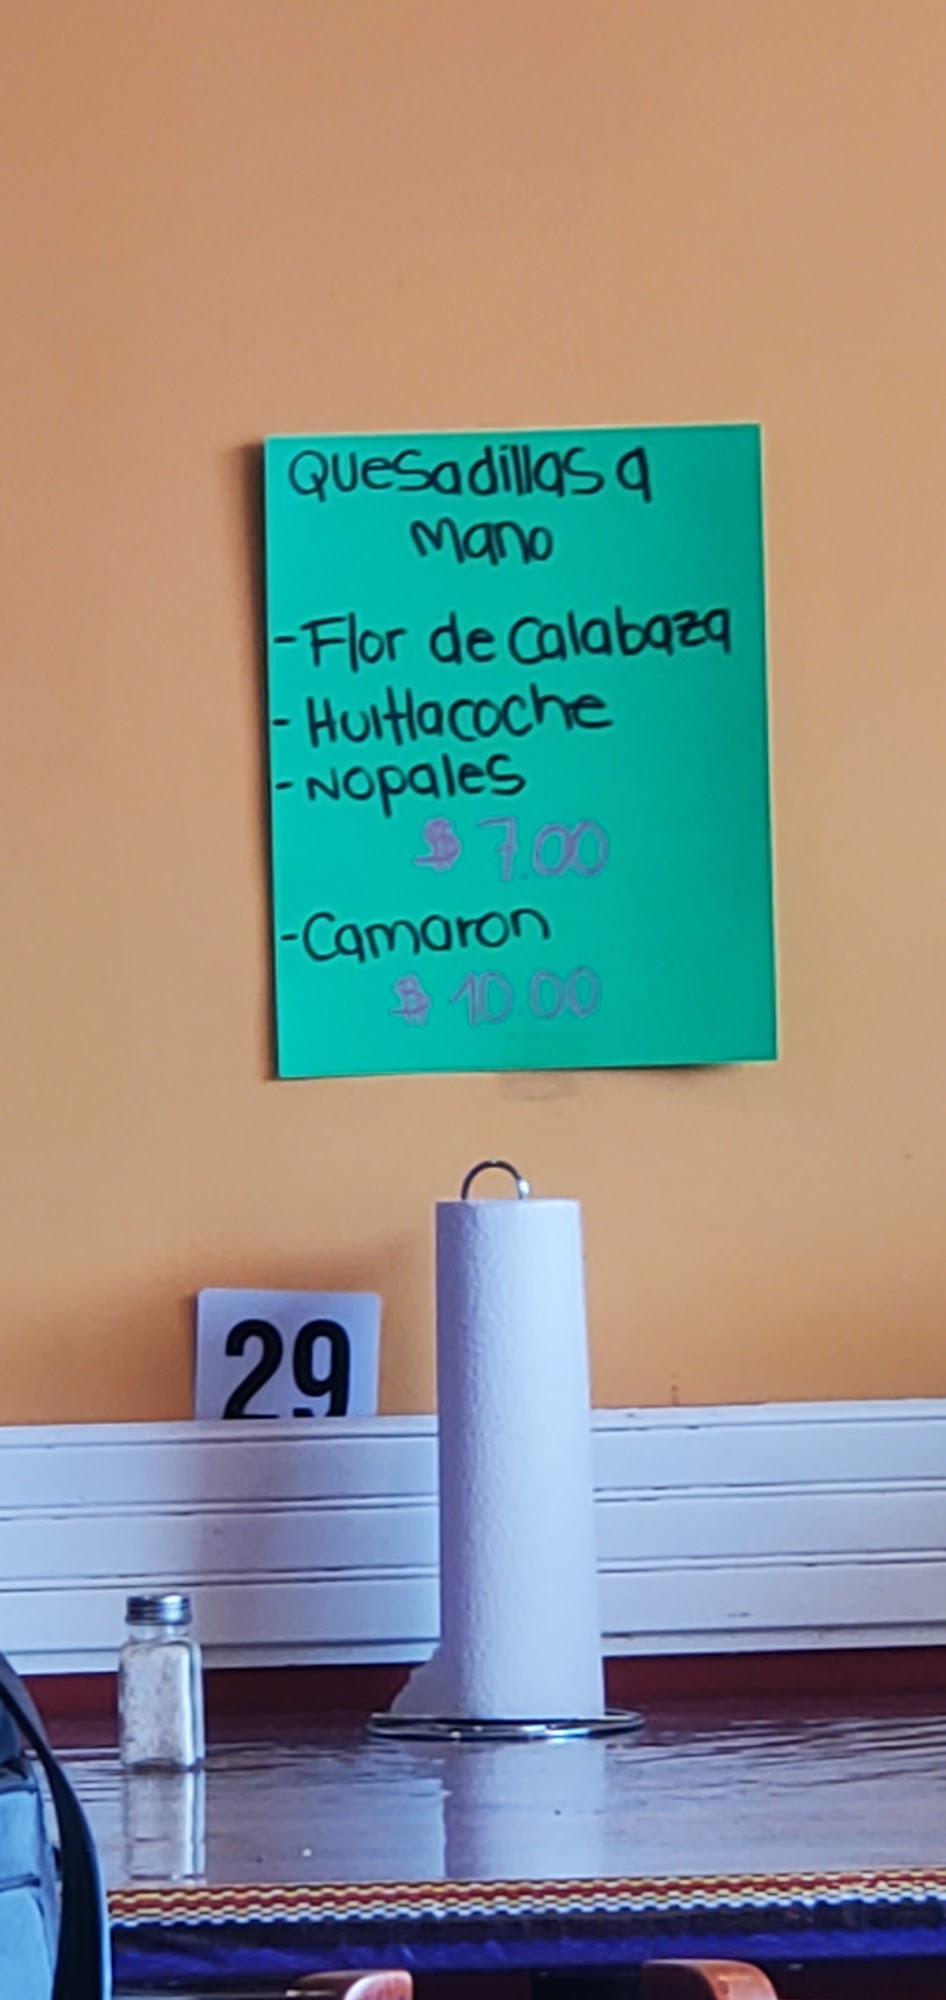 Quesadillas a
Mano
-Flor de Calabaza
-Huitlacoche
-Nopales
$7.00
-Camaron
$10.00
29